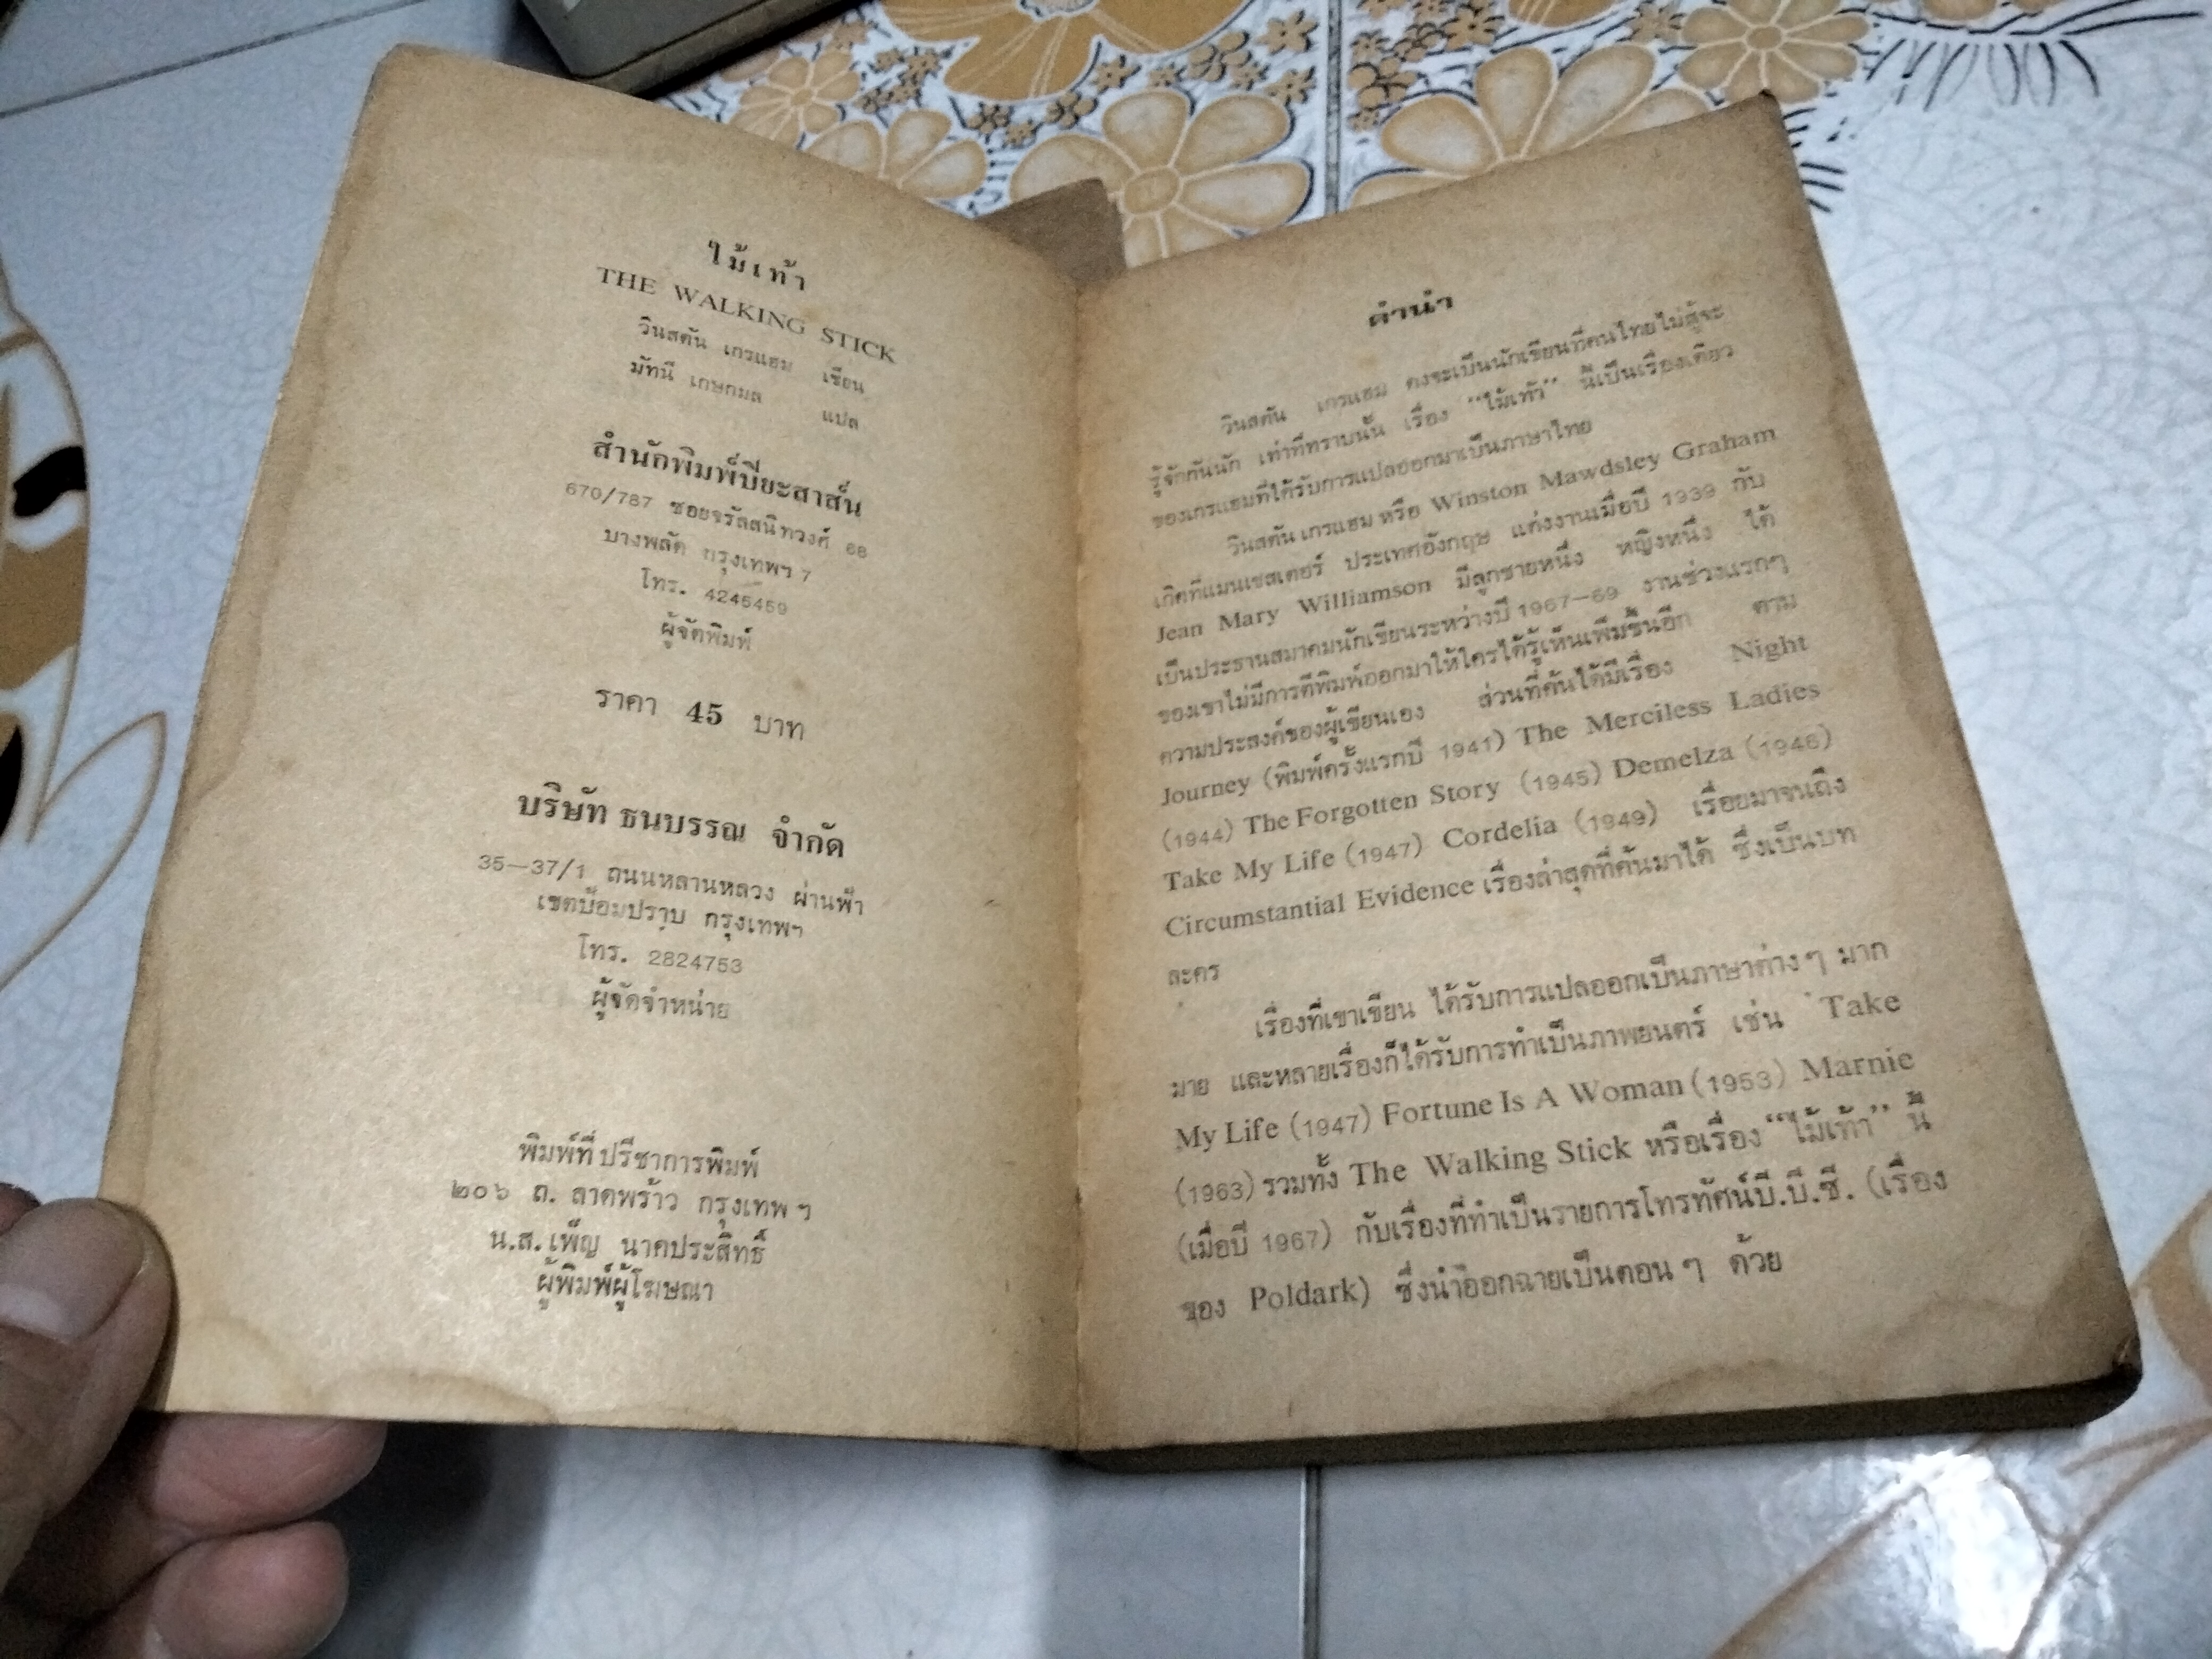 ไม้เท้า
THE WALKING STICK
วินสตัน เกรแฮม เขียน
มัทนี เกษกมล แปล
สำนักพิมพ์ปิยะสาส์น
670/787 ซอยจรัลสนิทวงศ์ 68
บางพลัด กรุงเทพฯ 7
โทร. 4245459
ผู้จัดพิมพ์
ราคา 45 บาท
บริษัท ธนบรรณ จำกัด
35—37/1 ถนนหลานหลวง ผ่านฟ้า
เขตป้อมปราบ กรุงเทพฯ
โทร. 2824753
ผู้จัดจำหน่าย
พิมพ์ที่ ปรีชาการพิมพ์
๒๐๖ ถ. ลาดพร้าว กรุงเทพ ฯ
น.ส. เพ็ญ นาคประสิทธิ์
ผู้พิมพ์ผู้โฆษณา
คำนำ
วินสตัน เกรแฮม คงจะเป็นนักเขียนที่คนไทยไม่สู้จะ
รู้จักกันนัก เท่าที่ทราบนั้น เรื่อง “ไม้เท้า” นี้เป็นเรื่องเดียว
ของเกรแฮมที่ได้รับการแปลออกมาเป็นภาษาไทย
วินสตัน เกรแฮม หรือ Winston Mawdsley Graham
เกิดที่แมนเชสเตอร์ ประเทศอังกฤษ แต่งงานเมื่อปี 1939 กับ
Jean Mary Williamson มีลูกชายหนึ่ง หญิงหนึ่ง ได้
เป็นประธานสมาคมนักเขียนระหว่างปี 1967—69 งานช่วงแรกๆ
ของเขาไม่มีการตีพิมพ์ออกมาให้ใครได้รู้เห็นเพิ่มขึ้นอีก ตาม
ความประสงค์ของผู้เขียนเอง ส่วนที่ค้นได้มีเรื่อง Night
Journey (พิมพ์ครั้งแรกปี 1941) The Merciless Ladies
(1944) The Forgotten Story (1945) Demelza (1946)
Take My Life (1947) Cordelia (1949) เรื่อยมาจนถึง
Circumstantial Evidence เรื่องล่าสุดที่ค้นมาได้ ซึ่งเป็นบท
ละคร
เรื่องที่เขาเขียน ได้รับการแปลออกเป็นภาษาต่าง ๆ มาก
มาย และหลายเรื่องก็ได้รับการทำเป็นภาพยนตร์ เช่น Take
My Life (1947) Fortune Is A Woman (1953) Marnie
(1963) รวมทั้ง The Walking Stick หรือเรื่อง “ไม้เท้า” นี้
(เมื่อปี 1967) กับเรื่องที่ทำเป็นรายการโทรทัศน์บี.บี.ซี. (เรื่อง
ของ Poldark) ซึ่งนำออกฉายเป็นตอน ๆ ด้วย